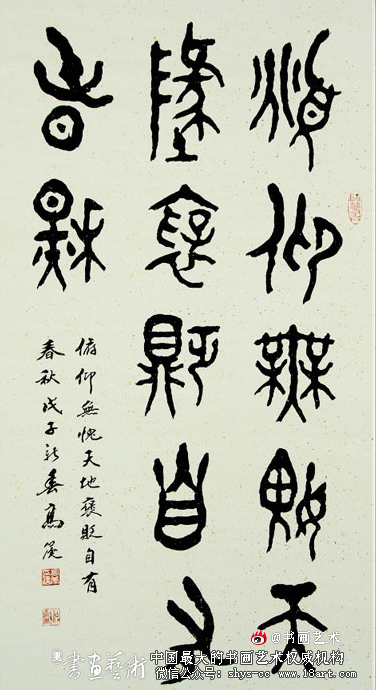 俯仰無愧天
地褒貶自有
春秋
俯仰無愧天地褒貶自有
春秋戊子新春高
@书画艺术
書畫藝術
中国最大的书画艺术权威机构
微信公众号：shys-co www.18art.com